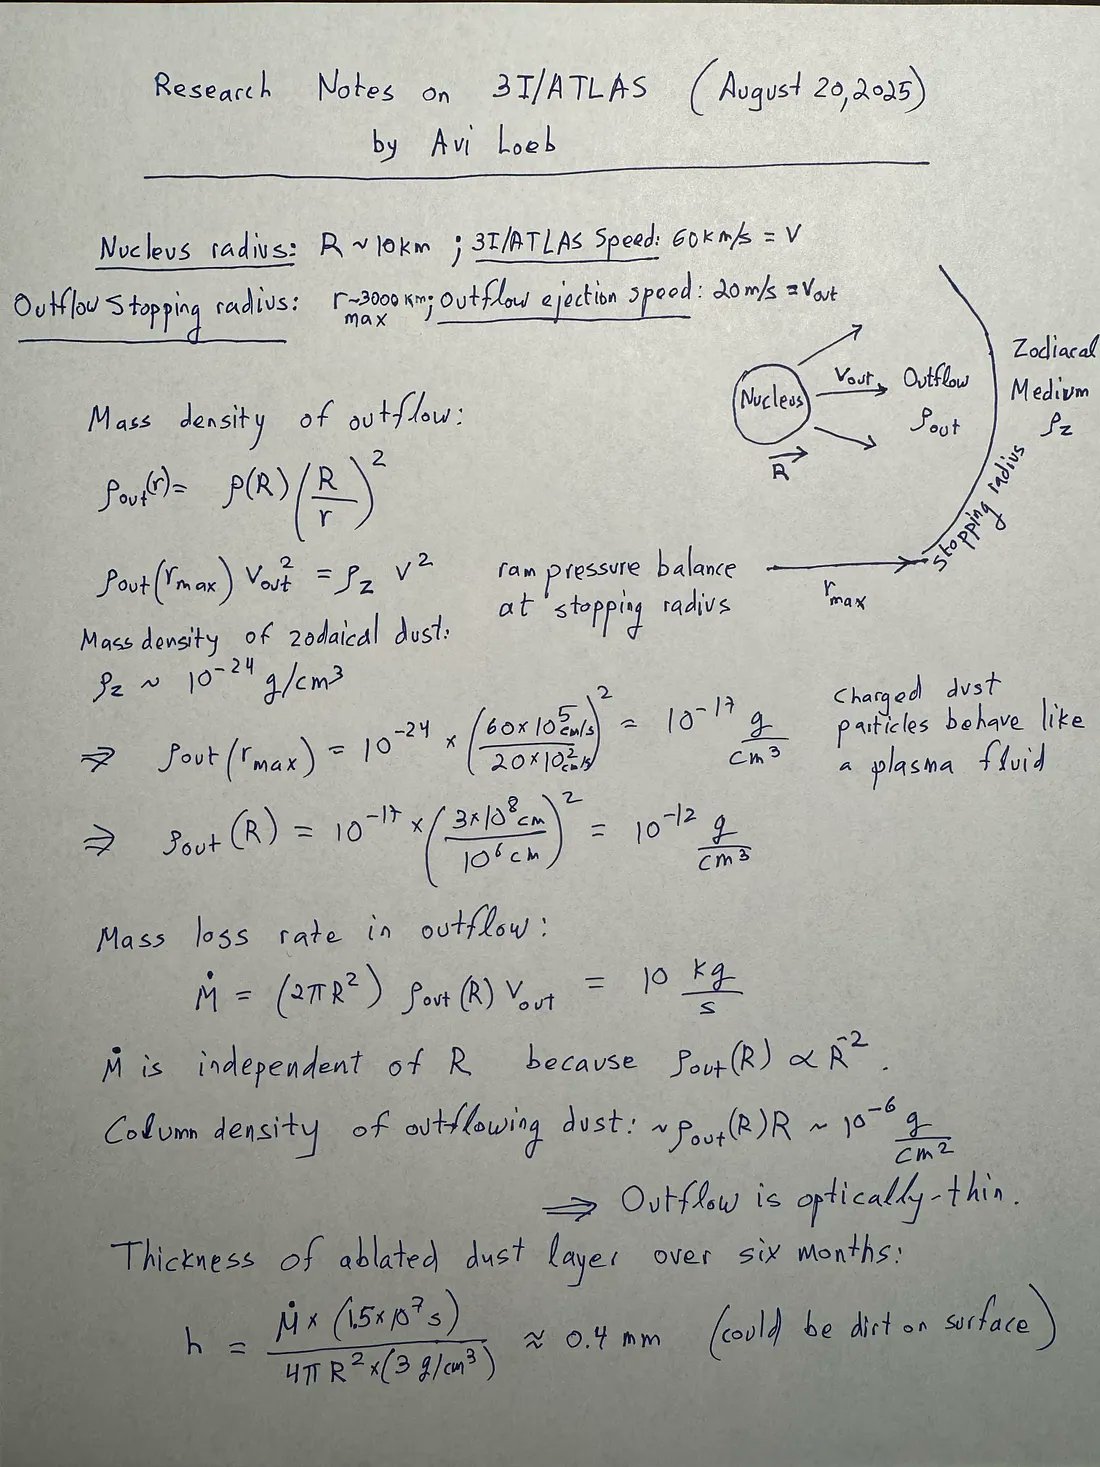 Research Notes on 3I/ATLAS (August 20, 2025)
by Avi Loeb
Nucleus radius: R ~ 10 km ; 3I/ATLAS Speed: 60 km/s = V
Outflow Stopping radius: r_max ~ 3000 km; Outflow ejection speed: 20 m/s = V_out
Nucleus
V_out
Outflow
ρ_out
R
Zodiacal
Medium
ρ_z
stopping radius
r_max
Mass density of outflow:
ρ_out(r) = ρ(R) (R/r)^2
ρ_out(r_max) V_out^2 = ρ_z V^2
ram pressure balance
at stopping radius
Mass density of zodaical dust:
ρ_z ~ 10^-24 g/cm^3
⇒ ρ_out(r_max) = 10^-24 × (60×10^5 cm/s / 20×10^2 cm/s)^2 = 10^-17 g/cm^3
Charged dust
particles behave like
a plasma fluid
⇒ ρ_out(R) = 10^-17 × (3×10^8 cm / 10^6 cm)^2 = 10^-12 g/cm^3
Mass loss rate in outflow:
Ṁ = (2πR^2) ρ_out(R) V_out = 10 kg/s
Ṁ is independent of R because ρ_out(R) ∝ R^-2.
Column density of outflowing dust: ~ρ_out(R)R ~ 10^-6 g/cm^2
⇒ Outflow is optically-thin.
Thickness of ablated dust layer over six months:
h = Ṁ × (1.5×10^7 s) / 4πR^2×(3 g/cm^3) ≈ 0.4 mm (could be dirt on surface)